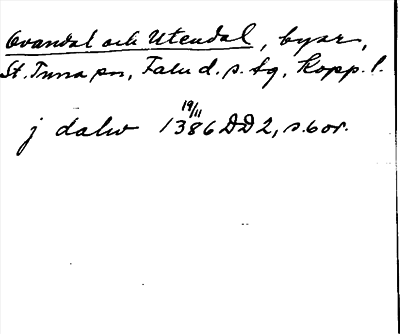 Ovandal och Utendal, byar,
St. Tuna sn, Falu d. s. tg, Kopp. l.
19/11
j dalw 1386 DD2, s. 6 or.